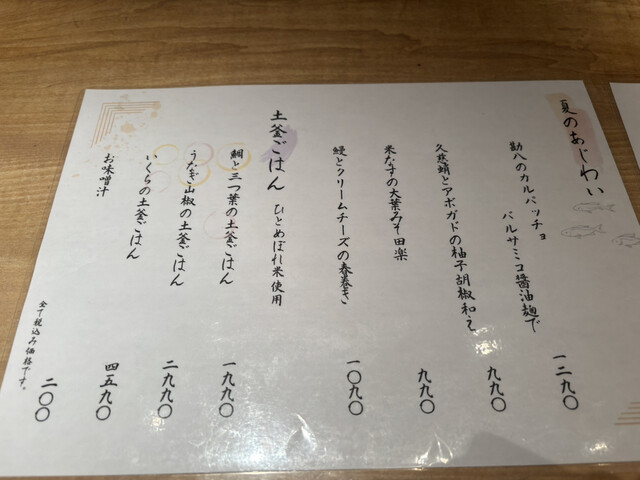 夏のあじわい
勘八のカルパッチョ
バルサミコ醤油麹で 一二九〇
久慈蛸とアボガドの柚子胡椒和え 九九〇
米なすの大葉みそ田楽 九九〇
鰻とクリームチーズの春巻き 一〇九〇
土釜ごはん ひとめぼれ米使用
鯛と三つ葉の土釜ごはん 一九九〇
うなぎ山椒の土釜ごはん 二九九〇
いくらの土釜ごはん 四五九〇
お味噌汁 二〇〇
全て税込み価格です。